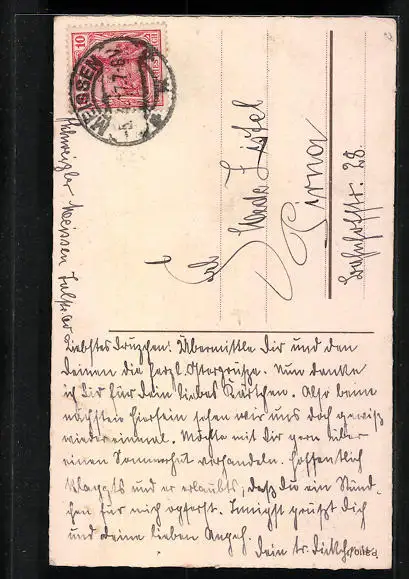 MEISSEN
10
Frl.
Pirna
Bahnhofstr. 28.
Meissen
Liebstes Druzchen! Übermittle Dir und den
Deinen die herzl. Ostergrüsse. Nun danke
ich Dir für Dein liebes Kärtchen. Also beim
nächsten hiersein sehen wir uns doch gewiß
wiedereinmal. Möchte mit Dir gern über
einen Sommerhut verhandeln. Hoffentlich
klappts und er erlaubts, daß du ein Stünd-
chen für mich opferst. Innigst grüßt Dich
und deine lieben Angeh.
Dein tr.